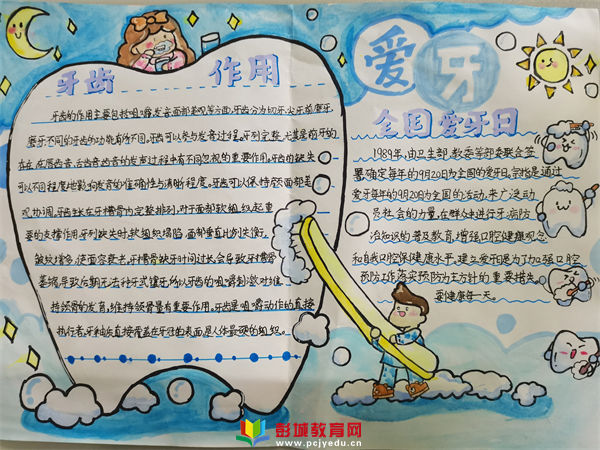 牙齿 作用
牙齿的作用主要包括咀嚼、发音、面部美观等方面,牙齿分为切牙、尖牙、前磨牙、
磨牙,不同的牙齿的功能有所不同。牙齿可以参与发音过程。牙列完整,尤其是前牙的
存在,在唇齿音、舌齿音齿音的发声过程中有不可忽视的重要作用。牙齿的缺失
可以不同程度地影响发音的准确性与清晰程度。牙齿可以保持颜面部美
观协调。牙齿缺在牙槽骨内完整排列,对于面部软组织起重
要的支撑作用。牙列缺失时,软组织塌陷,面部垂直比例失衡,
皱纹增多,使面容衰老。牙槽骨缺牙时间过长,会导致牙槽骨
萎缩,导致后期无法种牙或镶牙,所以牙齿的咀嚼刺激对维
持颌骨的发育,维持颌骨量有重要作用。牙齿是咀嚼动作的直接
执行者。牙釉质直接覆盖在牙冠的表面,是人体最硬的组织。
爱牙
全国爱牙日
1989年,由卫生部、教委等部委联合签
署确定每年的9月20日为全国的爱牙日。宗旨是通过
爱牙每年的9月20日为全国的活动,来广泛动
员社会的力量,在群众中进行牙病防
治知识的普及教育,增强口腔健康观念
和自我口腔保健健康水平。建立爱牙是为了加强口腔
预防工作,落实预防为主方针的重要措施。
要健康每一天。
彭城教育网
www.pcjyedu.cn